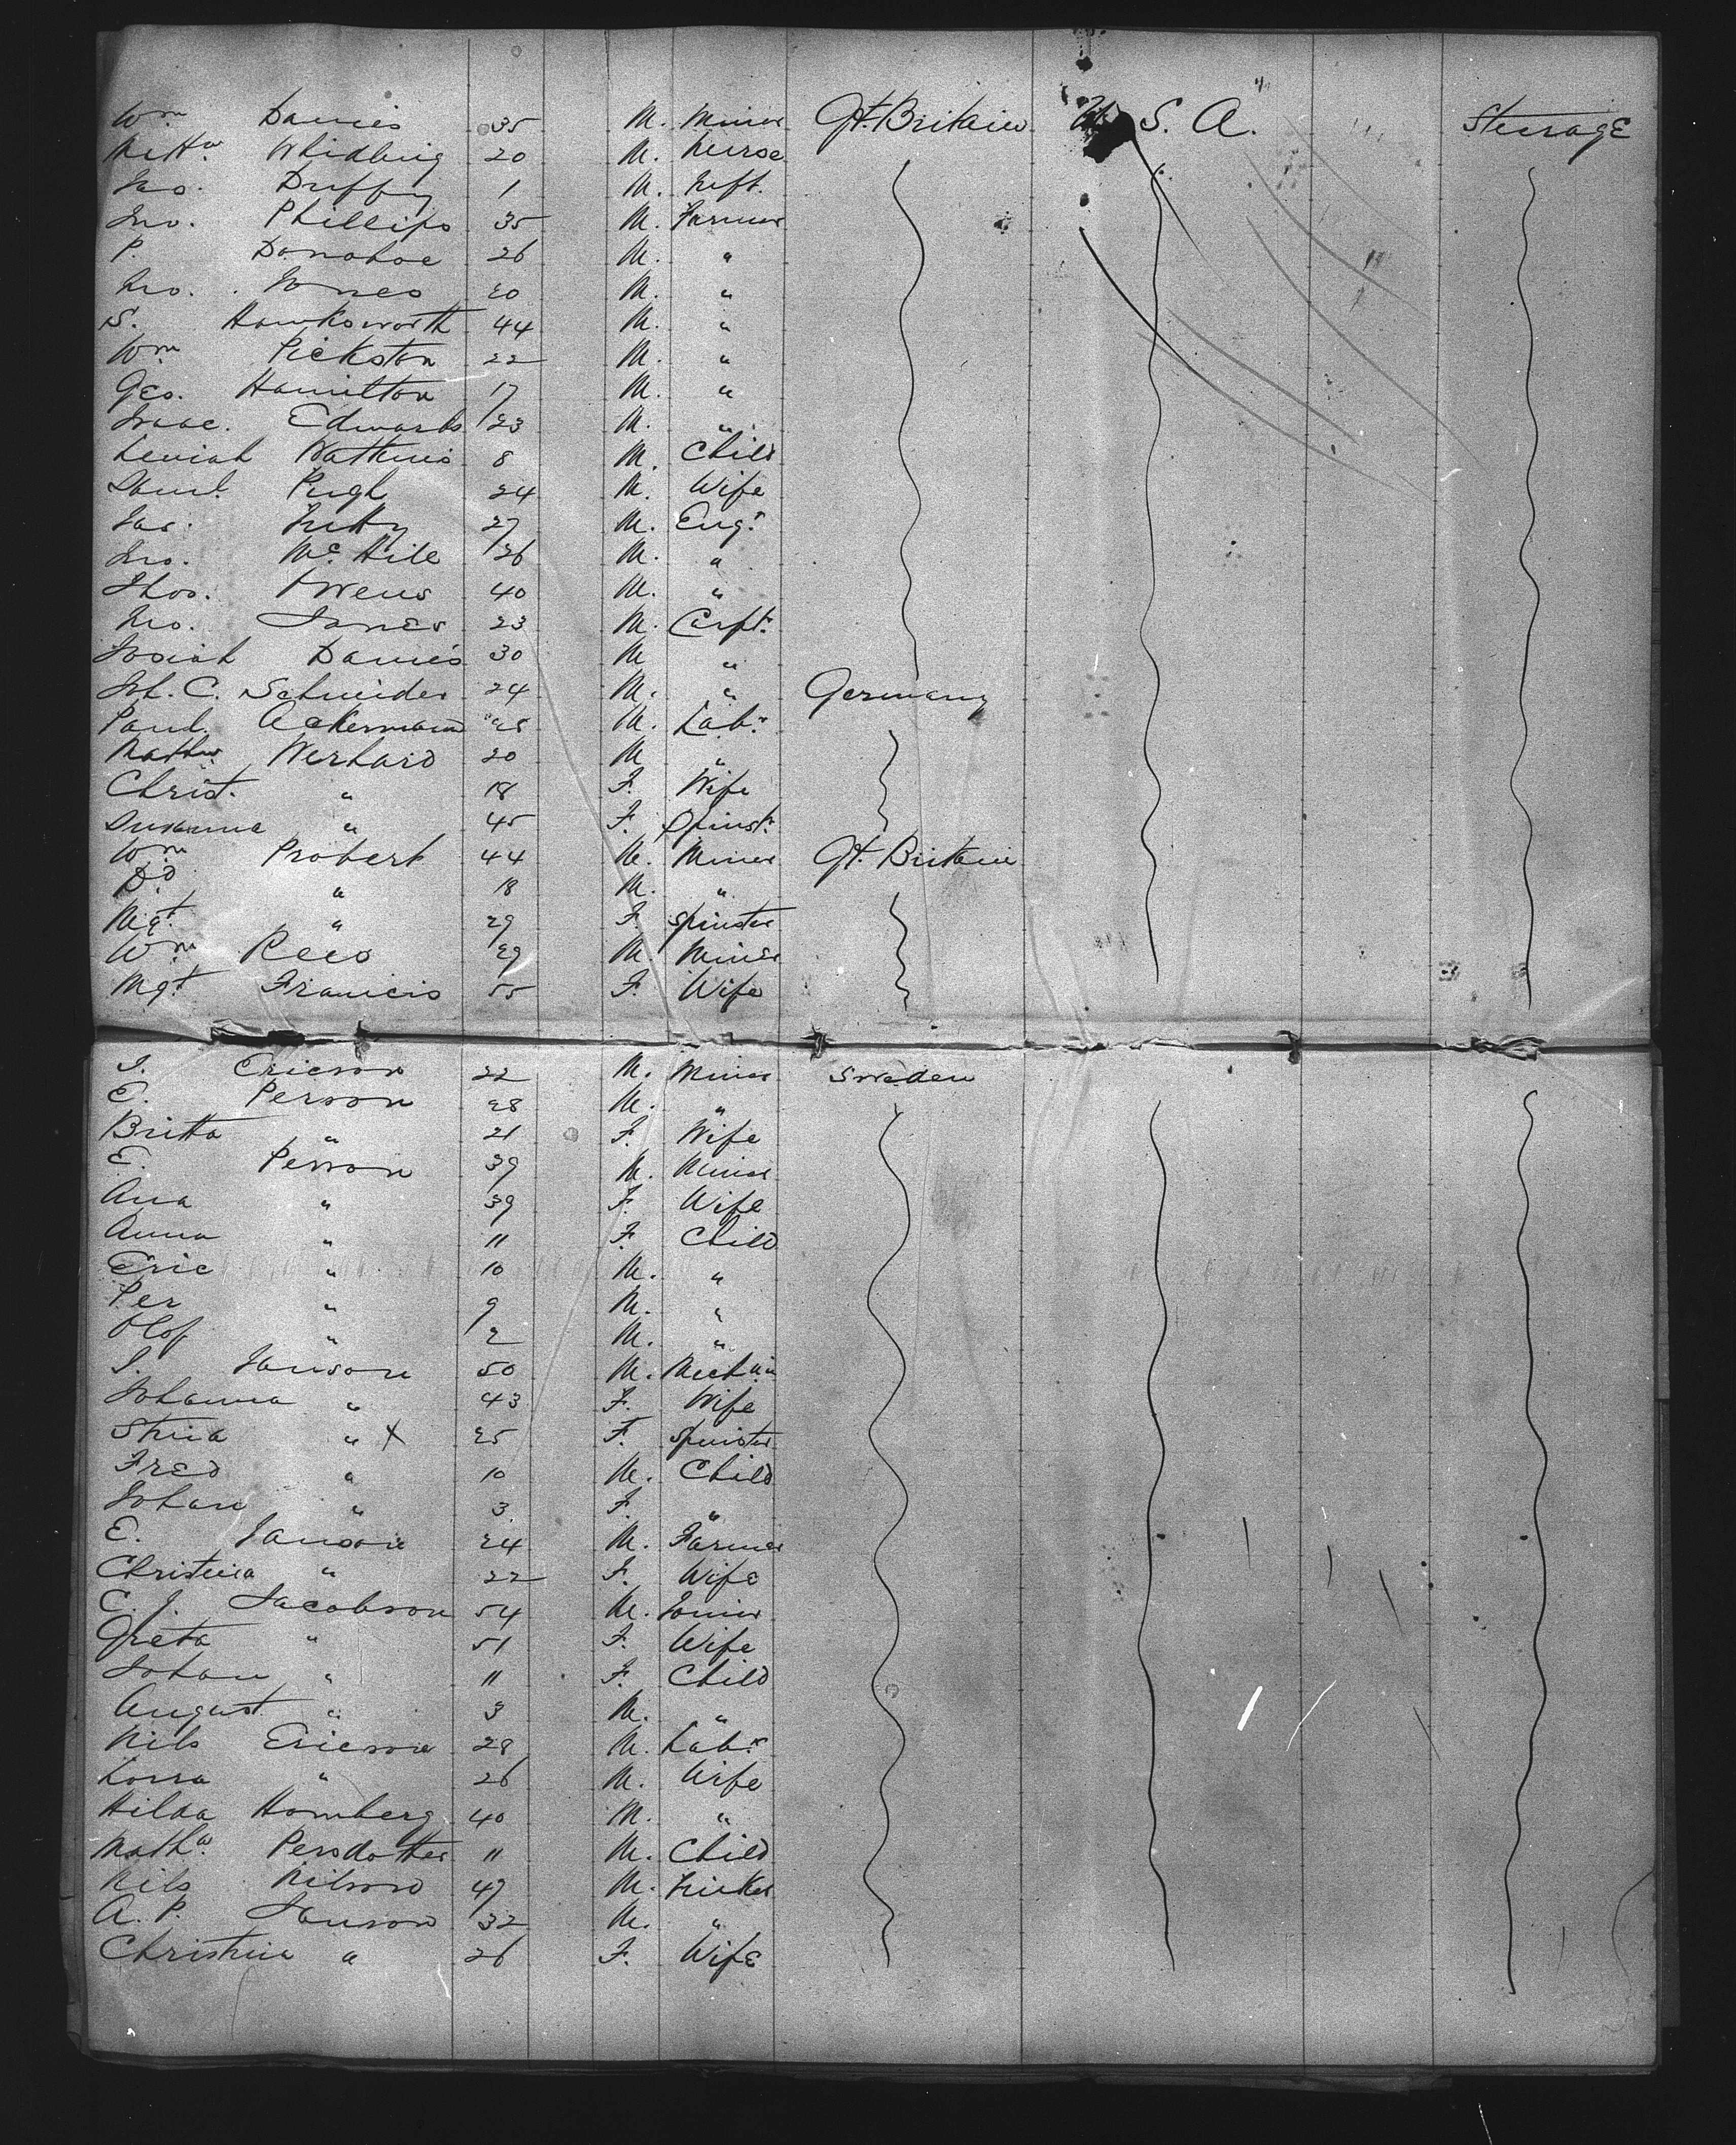 Wm Davies 35 M. Miner Gt. Britain U. S. A. Steerage
Whidbuig 20 M. Nurse
Jas. Duffy 1 M. Inft.
Jno. Phillips 35 M. Farmer
P. Donohoe 26 M. "
Jno. Jones 20 M. "
S. Hawksworth 44 M. "
Wm Pickston 22 M. "
Geo. Hamilton 17 M. "
Isaac. Edwards 23 M. "
8 M. Child
Saml. Pugh 24 M. Wife
Jas. 27 M. Engr.
Jno. McHile 26 M. "
Thos. Owens 40 M. "
Jno. Jones 23 M. Carptr.
Josiah Davies 30 M "
Joh. C. Schneider 24 M. " Germany
Paul. Ackermann 28 M. Labr.
Werhard 20 M "
Christ. " 18 F. Wife
Susanna " 45 F. Spinstr.
Wm Probert 44 M. Miner Gt. Britain
Dd " 18 M. "
Mgt. " 29 F. Spinster
Wm Rees 29 M. Miner
Mgt. Francis 55 F. Wife
Ericson 22 M. Miner Sweden
E. Person 28 M. "
Britta " 21 F. Wife
E. Person 39 M. Miner
Ana " 39 F. Wife
Anna " 11 F. Child
Eric " 10 M. "
Per " 9 M. "
Olof " 2 M. "
Janson 50 M.
Johanna " 43 F. Wife
Stina " X 25 F. Spinster
Fred " 10 M. Child
Johan " 3. F. "
E. Janson 24 M. Farmer
Christina " 22 F. Wife
C. J. Jacobson 54 M. Joiner
Greta " 51 F. Wife
Johan " 11 F. Child
August " 3 M. "
Nils Ericson 28 M. Labr.
" 26 M. Wife
Hilda Homberg 40 M. "
Matha. Persdotter 11 M. Child
Nils Nilson 47 M.
A. P. Janson 32 M. "
Christina " 26 F. Wife